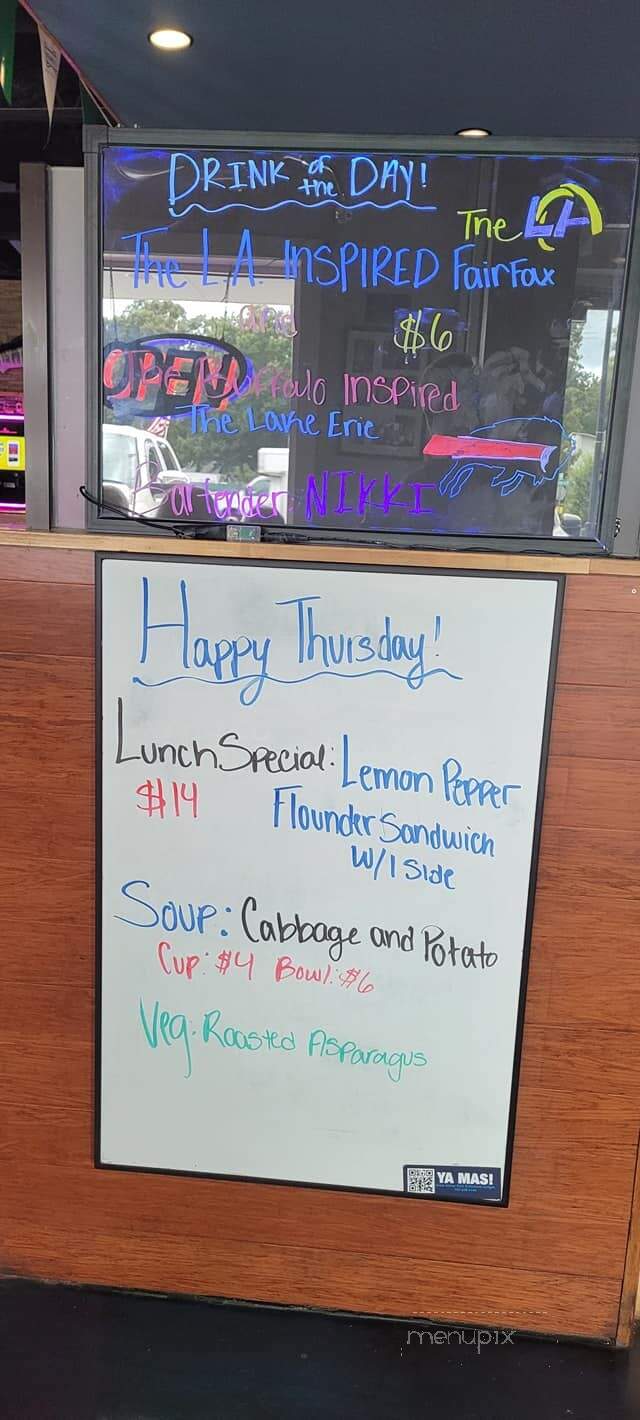 DRINK of the DAY!
The LA
The L.A. INSPIRED FairFax
and $6
The Buffalo Inspired
OPEN
The Lake Erie
Bartender: NIKKI
Happy Thursday!
Lunch Special: Lemon Pepper
$14 Flounder Sandwich
W/1 Side
Soup: Cabbage and Potato
Cup: $4 Bowl: $6
Veg: Roasted Asparagus
YA MAS!
menupix